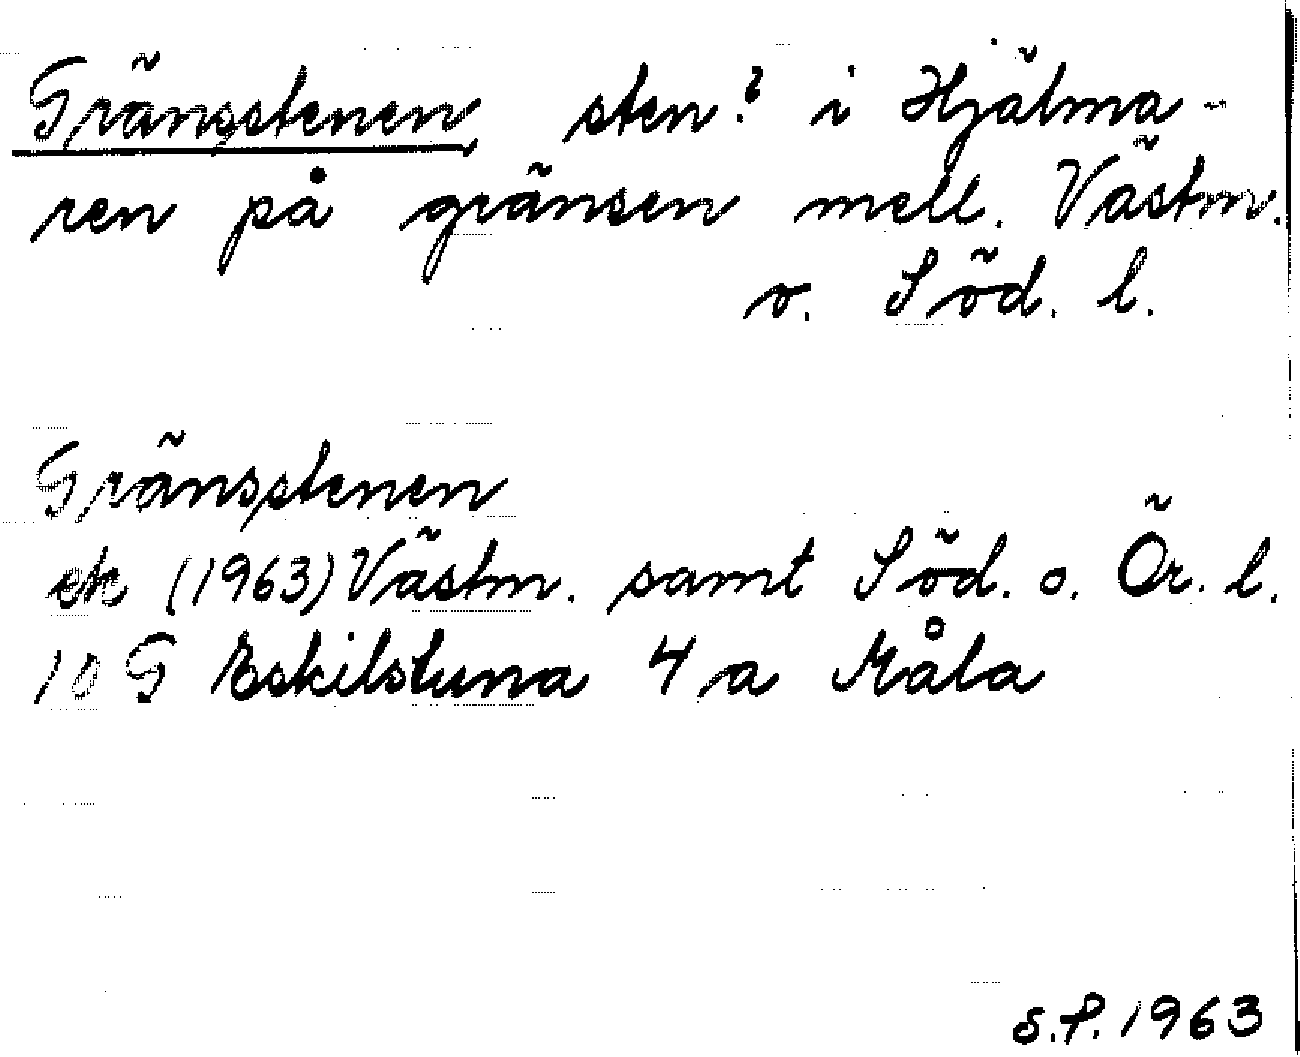 Gränsstenen, sten? i Hjälma-
ren på gränsen mell. Västm.
o. Söd. l.
Gränsstenen
ek (1963) Västm. samt Söd. o. Ör. l.
10 G Eskilstuna 4 a Måla
S.P. 1963